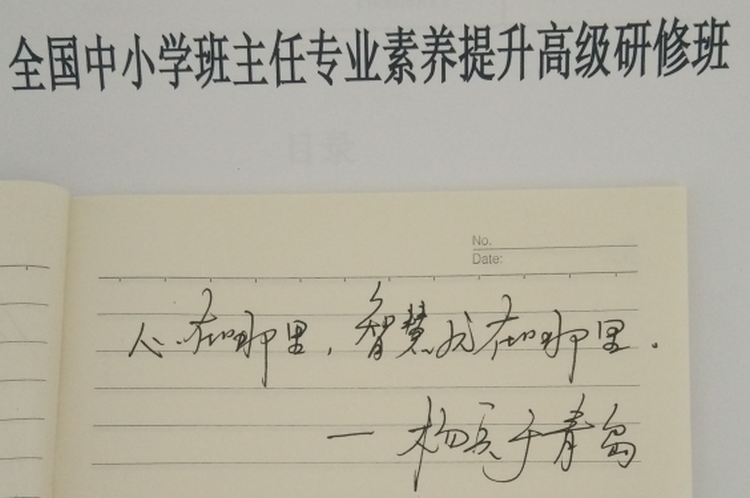 全国中小学班主任专业素养提升高级研修班
目录
No.
Date:
心在哪里，智慧就在哪里.
— 杨兵于青岛